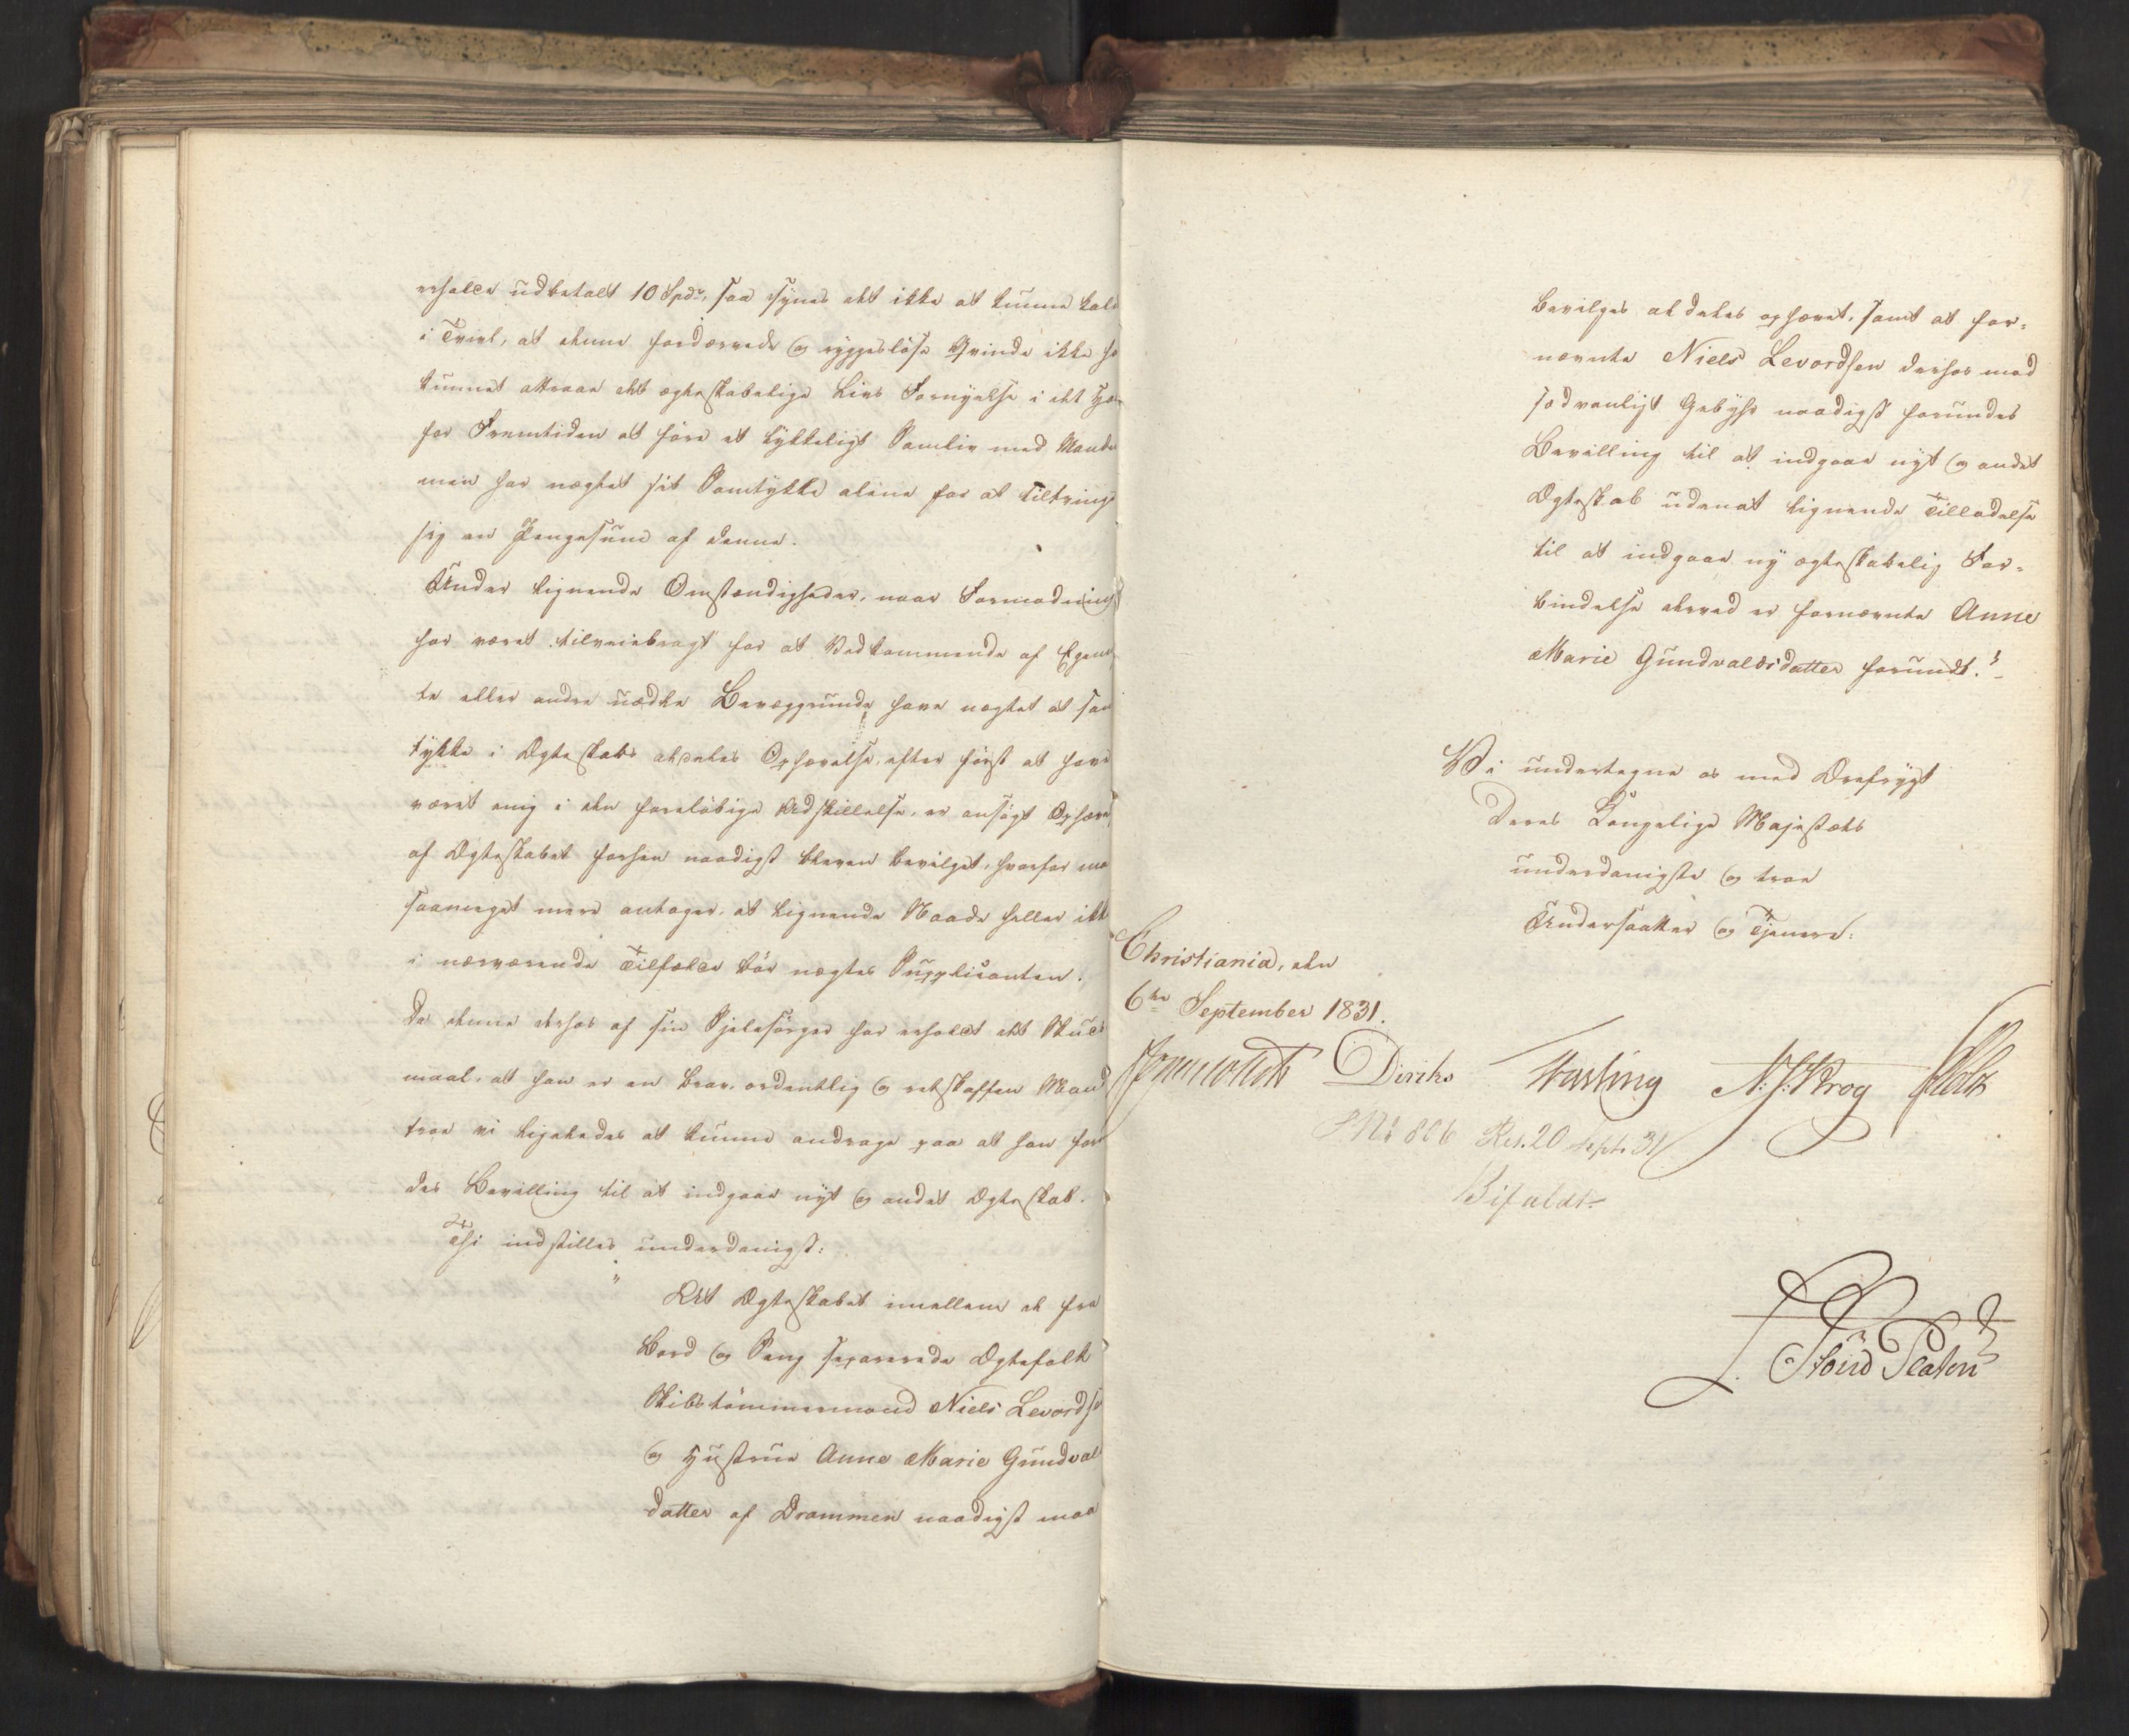 erholde udbetalt 10 Spdr, saa synes det ikke at kunne kald
i Tvivl, at denne fordærvede og ryggesløse Qvinde ikke ha
kunnet attraae det ægteskabelige Livs Fornyelse i det Ha
for Fremtiden at føre et lykkeligt Samliv med Manden
men har nægtet sit Samtykke alene for at tiltvinge
sig en Pengesum af denne.
Under lignende Omstændigheder, naar Formodning
har været tilveiebragt for at Vedkommende af Egen
te eller andre uædle Bevæggrunde have nægtet at sam
tykke i Ægteskabs aldeles Ophævelse, efter først at have
været enig i den foreløbige Adskillelse, er ansøgt Ophæv
af Ægteskabet forhen naadigst bleven bevilget, hvorfor ma
saameget mere antager, at lignende Naade heller ikke
i nærværende Tilfælde bør nægtes Supplicanten.
Da denne derhos af sin Sjelesørger har erholdt det Skuds
maal, at han er en brav, ordentlig og retskaffen Mand
troe vi ligeledes at kunne andrage paa at han forun
des Bevilling til at indgaae nyt og andet Ægteskab.
Thi indstilles underdanigst:
" At Ægteskabet imellem de fra
Bord og Seng separerede Ægtefolk
Skibstømmermand Niels Levordse
og Hustrue Anne Marie Gundvalds
datter af Drammen naadigst maa
bevilges aldeles ophævet, samt at for-
nævnte Niels Levordsen derhos mod
sædvanligt Gebyhr naadigst forundes
Bevilling til at indgaae nyt og andet
Ægteskab uden at lignende Tilladelse
til at indgaae ny ægteskabelig For-
bindelse derved er fornævnte Anne
Marie Gundvaldsdatter forundt."
Vi undertegne os med Ærefrygt
Deres Kongelige Majestæts
underdanigste og troe
Undersaatter og Tjenere:
Christiania, den
6te September 1831.
Diriks Vasling N. J. Krog Holst
S No 806 Res. 20 Sept. 31
Bifaldt
Platen